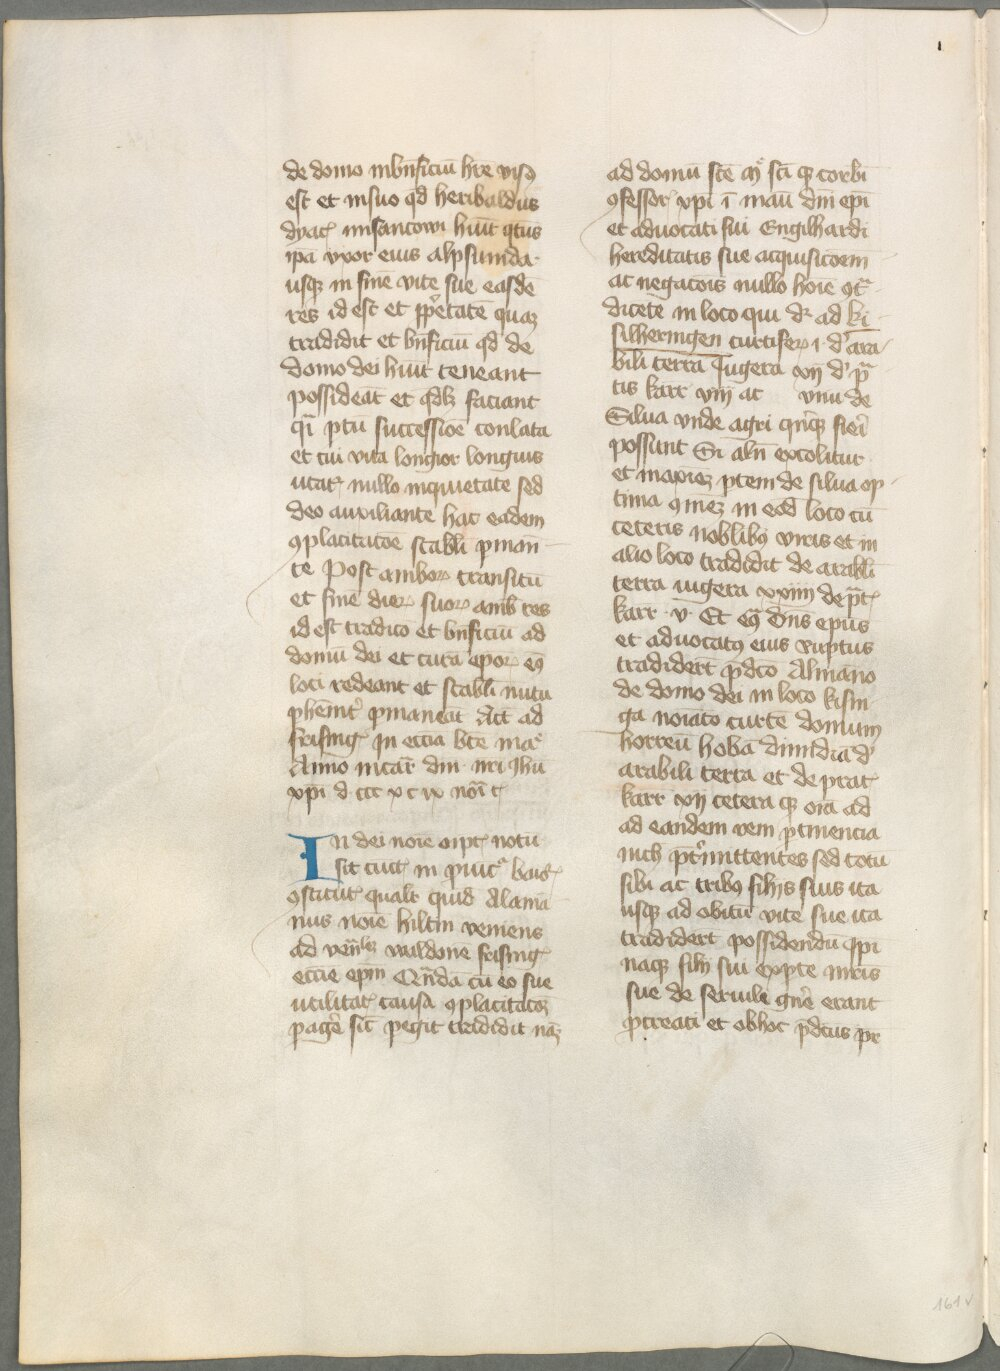 de domo in bn̄ficiū hr̄e visꝰ
est et in suo qd̄ heribaldus
dyac̄ in isancowi huīt qtūs
ip̄a vxor eius alpsuinda
usqꝫ in finē vite sue easdē
res id est et ꝓp̄etatē quaꝫ
tradidit et bn̄ficiū qd̄ de
domo dei huīt teneant
possideāt et qd̄ libꝫ faciant
successiōe conlata
et cui vita longior longius
utat᷒ nullo inquietate sed
deo auxiliante hac eadem
ꝯplacitatōe stabl̄i ꝑman̄
te Post amboꝝ transitū
et finē dieꝝ suoꝝ amb̄ res
id est tradicō et bn̄ficiū ad
domū dei et curā epoꝝ eiꝰ
loci redeant et stabl̄i nutu
ꝑhēnit᷒ ꝑmaneāt Act̄ ad
frising᷒ In eccīa bt̄e mar̄
Anno incar̄ dn̄i nr̄i Jhū
xp̄i d ccc x c ix
In dei noīe oīpt᷒ notū
sit cūct᷒ in ꝓuīc̄ baꝛ᷒
ꝯstitut᷒ qualr̄ quid Alamā
nus noīe hiltin veniens
ad ven̄lꝫ waldonē frising᷒
eccīe ep̄m Qn̄dā cū eo sue
utilitat᷒ causa ꝯplacitatōꝫ
pagēr sic̄ pegit tradidit nāꝫ
ad domū sc̄e mͬ sc̄i qꝫ corbi
ꝯfessor᷒ xp̄i ī manū dn̄i ep̄i
et aduocati sui Engilhardi
hereditatis sue acquisicōem
ac negacōis nullo hoīe ꝯtͣ
dicēte in loco qui dr̄ ad ki
silheringen curtiferꝝ i d' ara
bili terra Jugera xij d' pͣ
tis karr̄ viij ac vnū de
Silua vnde agri qn̄qꝫ fieri
possunt Si aln̄ excolitur
et maxiēꝫ ꝑtem de silua op
tima ꝯ in eod̄ loco cū
ceteris nobilibꝰ viris et in
alio loco tradidit de arabli
terra iugera xxiiij de pͣt᷒
karr̄ v Et ꝯͣ dn̄s ep̄us
et aduocatꝰ eius ruptus
tradidert̄ p̄dc̄o Almāno
de domo dei in loco kisin
ga noīato curtē domum
horreū hobā dimidiā d'
arabili terra et de prat᷒
karr̄ xij cetera qꝫ oīa ad
ad eandem rem ꝑtinencia
nich p̄t᷒mittentes sed totū
sibi ac tribꝰ filijs suis ita
usqꝫ ad obitū vite sue ita
tradidert̄ possidendū Ipi
naqꝫ filij sui exꝑte mr̄is
sue de seruile gn̄e erant
ꝓcreati et ob hoc p̄dc̄us pr̄
161v